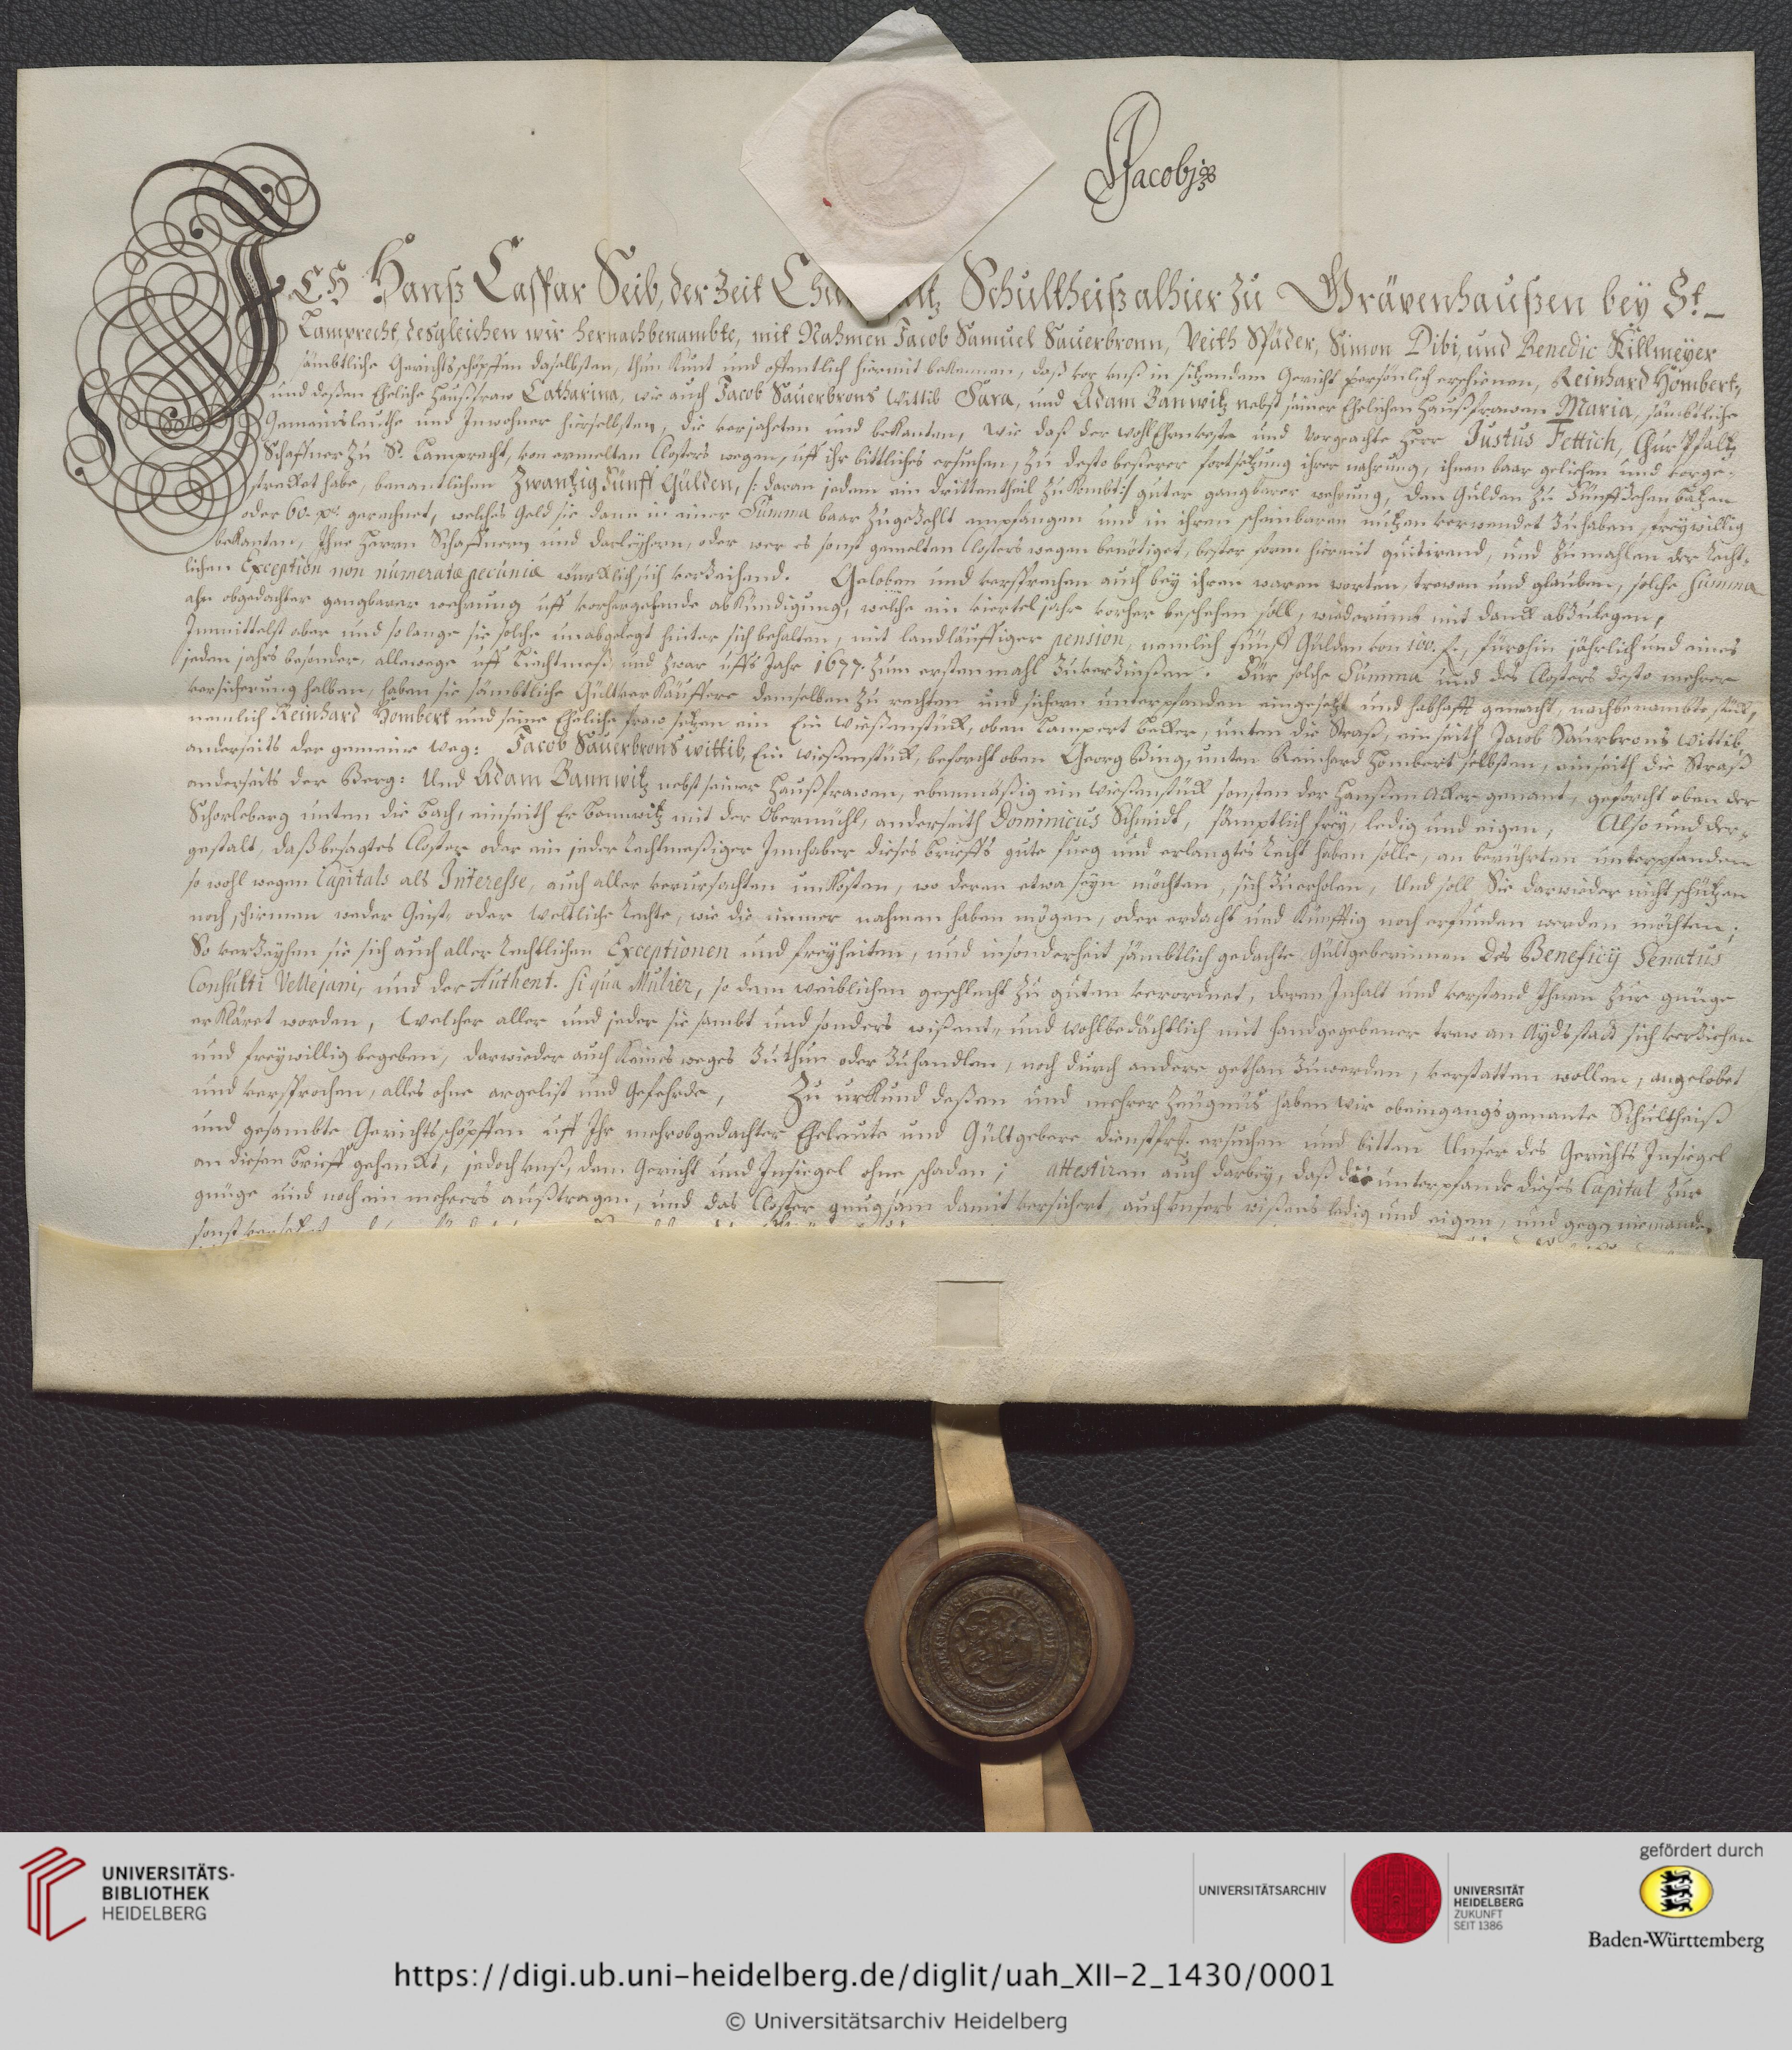 Jacobj
ICH Hanß Caspar Seib, der Zeit Schultheiß alhier zu Grävenhaußen bey St.
Lamprecht, desgleichen wir hernachbenambte, mit Nahmen Jacob Samuel Sauerbronn, Veith Späder, Simon Dibi, und Benedic Killmeyer
sämbtliche Gerichtsschöpffen daselbsten, thun Kunt und offentlich hiermit bekennen, daß vor unß in sitzendem Gericht persönlich erschienen, Reinhard Hombert,
und deßen Eheliche Haußfraw Catharina, wie auch Jacob Sauerbrons Wittib Sara, und Adam Banwitz nebst seiner Ehelichen Haußfrawen Maria, sämbtliche
Gemeinsleuthe und Inwohner hierselbsten, die verjaheten und bekanten, wie daß der wohl Ehrnveste und Vorgeachte Herr Justus Fettich, Chur Pfaltz
Schaffner zu St. Lamprecht, von ermelten Closters wegen, uff ihr bittliches ersuchen, zu desto beßerer fortsetzung ihrer nahrung, ihnen baar geliehen und vorge-
strecket habe, benantlichen Zwantzig Fünff Gülden, /: daran jedem ein drittentheil zukombt :/ guter gangbarer wehrung, den Gulden zu Fünffzehen batzen
oder 60. xr. gerechnet, welches Geld sie dann in einer Summa baar zugezehlt empfangen und in ihren scheinbaren nutzen verwendet zuhaben, freywillig
bekanten, Ihne Herrn Schaffnern und darleyhern, oder wer es sonst gemelten Closters wegen benötiget, bester form hiermit quitirend, und zumahlen der recht-
lichen Exception non numeratæ pecuniæ würcklich sich verzeihend. Geloben und versprechen auch bey ihren waren worten, trewen und glauben, solche Summa
ahn obgedachter gangbarer wehrung uff vorhergehende abkündigung, welche ein viertel jahr vorher beschehen soll, wiederumb mit danck abzulegen,
Immittelst aber und so lange sie solche unabgelegt hinter sich behalten, mit landläuffiger pension, nemlich fünff Gulden von 100. f., fürohin jährlich und eines
jeden jahrs besonder, allewege uff Liechtmeß, und zwar uffs Jahr 1677. zum erstenmahl zuverzinßen. Für solche Summa und des Closters desto mehrer
versicherung halben, haben sie sämbtliche Gültverkäuffere demselben zu rechten und sichern unterpfanden eingesetzt und habhafft gemacht, nachbenambte stück,
nemlich Reinhard Hombert und seine Eheliche fraw setzen ein Ein wießenstück, oben Lampert Becker, unten die Straß, einseith Jacob Saurbrons Wittib,
anderseits der gemeine weg: Jacob Sauerbrons wittib, Ein wießenstück, beforcht oben Georg Bing, unten Reinhard Hombert selbsten, einseith die Straß
anderseits der Berg: Und Adam Bannwitz nebst seiner Haußfrawen, ebenmäßig ein wießenstück sonsten der Haußen Acker genant, geforcht oben der
Schorleberg unten die bach, einseith Er Bannwitz mit der Obermühl, anderseith Dominicus Schmidt, sämptlich frey, ledig und eigen, Also und der-
gestalt, daß besagtes Closter oder ein jeder rechtmeßiger Innhaber dieses brieffs gute fueg und erlangtes recht haben solle, an berührten unterpfanden
so wohl wegen Capitals als Interesse, auch aller verursachten unkosten, wo deren etwa seyn möchten, sich zuerholen, Und soll Sie darwieder nicht schützen
noch schirmen weder Geist- oder weltliche rechte, wie die immer nahmen haben mögen, oder erdacht und künfftig noch erfunden werden möchten;
So verzeyhen sie sich auch aller rechtlichen Exceptionen und freyheiten, und insonderheit sämbtlich gedachte Gültgeberinnen des Beneficij Senatus
Consulti Vellejani, und der Authent. si qua Mulier, so dem weiblichen geschlecht zu guten verordnet, deren Inhalt und verstand Ihnen zur gnüge
erkläret worden, Welcher aller und jeder sie sambt und sonders wißent- und wohlbedächtlich mit handgegebener trew an Aydsstadt sich verziehen
und freywillig begeben, darwieder auch keines weges zuthun oder zuhandlen, noch durch andere gethan zuwerden, verstatten wollen, angelobet
und versprochen, alles ohne argelist und Gefehrde, Zu urkund deßen und mehrer Zeugnus haben wir obeingangsgenante Schultheiß
und gesambte Gerichtsschöpffen uff Ihr mehrobgedachter Eheleute und Gültgebere dienstfrl. ersuchen und bitten Unser des Gerichts Insiegel
an diesen brieff gehenckt, jedoch unß, dem Gericht und Insiegel ohne schaden; attestiren auch darbey, daß die unterpfande dieses Capital zur
gnüge und noch ein mehrers außtragen, und das Closter gnugsam damit versichert, auch unsers wißens ledig und eigen, und gegen niemanden
sonst
UNIVERSITÄTS-
BIBLIOTHEK
HEIDELBERG
UNIVERSITÄTSARCHIV
UNIVERSITÄT
HEIDELBERG
ZUKUNFT
SEIT 1386
gefördert durch
Baden-Württemberg
https://digi.ub.uni-heidelberg.de/diglit/uah_XII-2_1430/0001
© Universitätsarchiv Heidelberg